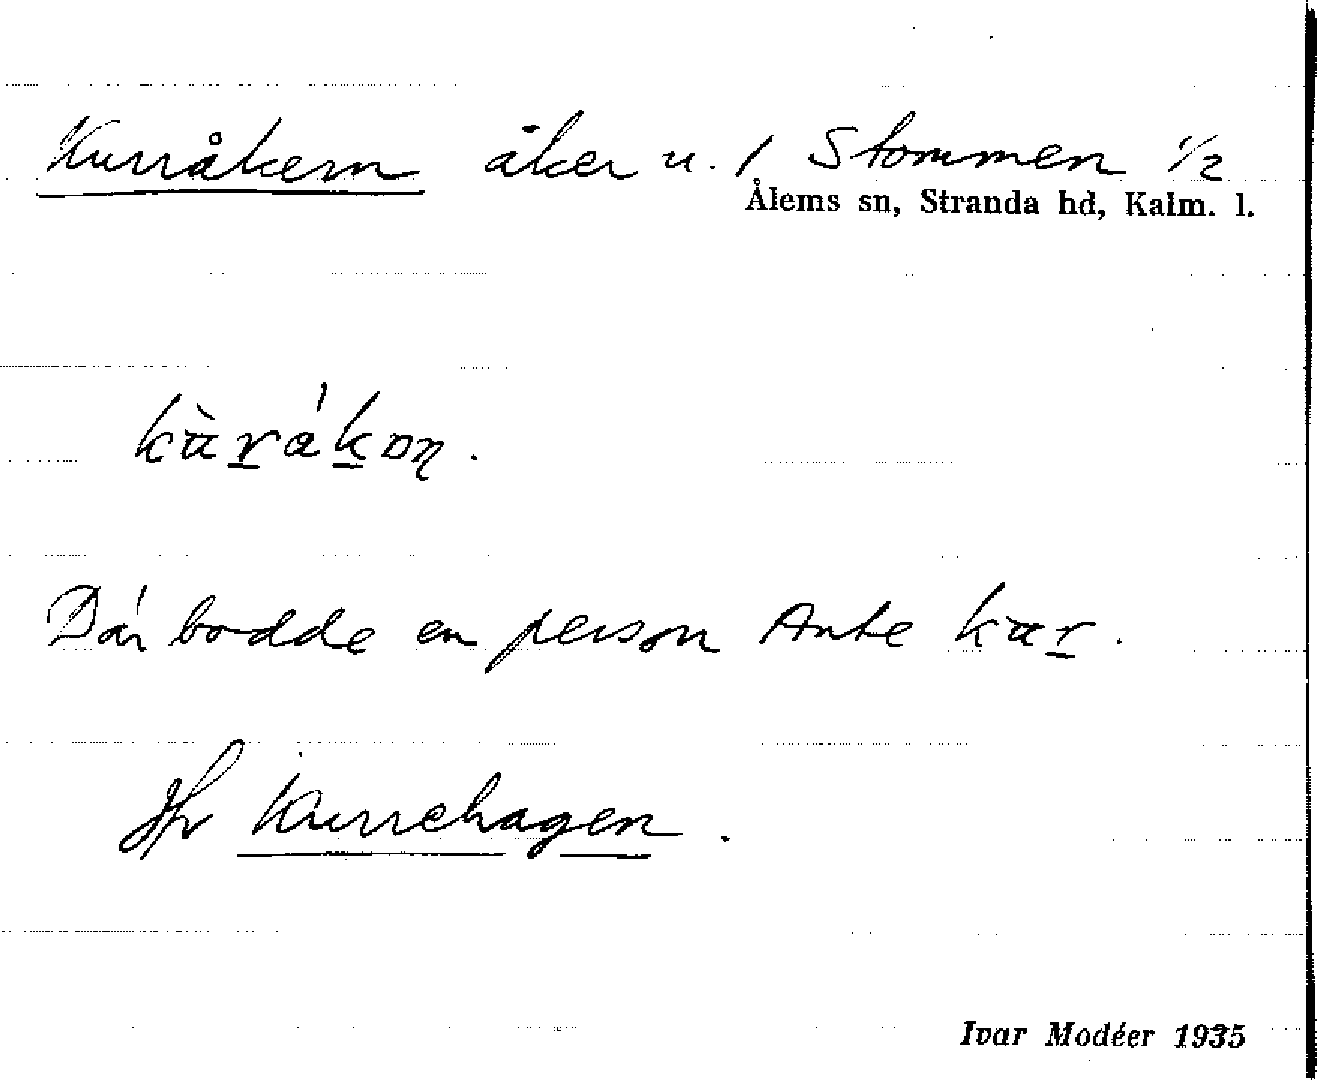 Kurråkern åker u. / Stommen 1/2
Ålems sn, Stranda hd, Kalm. l.
Där bodde en person Ante
Jfr Kurrehagen.
Ivar Modéer 1935